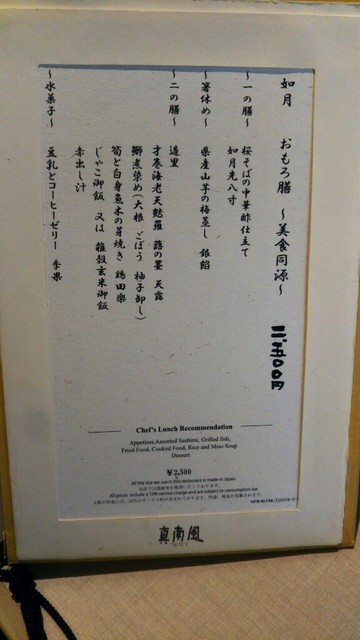 如月　おもろ膳　～美食同源～
二、五〇〇円
～一の膳～
桜そばの中華酢仕立て
如月先八寸
～箸休め～
県産山芋の梅蒸し　銀餡
～二の膳～
造里
才巻海老天麩羅　蕗の薹　天露
鰤煮染め（大根　ごぼう　柚子卸し）
筍と白身魚木の芽焼き　鶏田楽
じゃこ御飯　又は　雑穀玄米御飯
赤出し汁
～水菓子～
豆乳とコーヒーゼリー　季果
Chef's Lunch Recommendation
Appetizer,Assorted Sashimi, Grilled fish,
Fried Food, Cooked Food, Rice and Miso Soup
Dessert
¥2,500
All the rice we use in this restaurant is made in Japan
All prices include a 10% service charge and are subject to consumption tax.
真南風